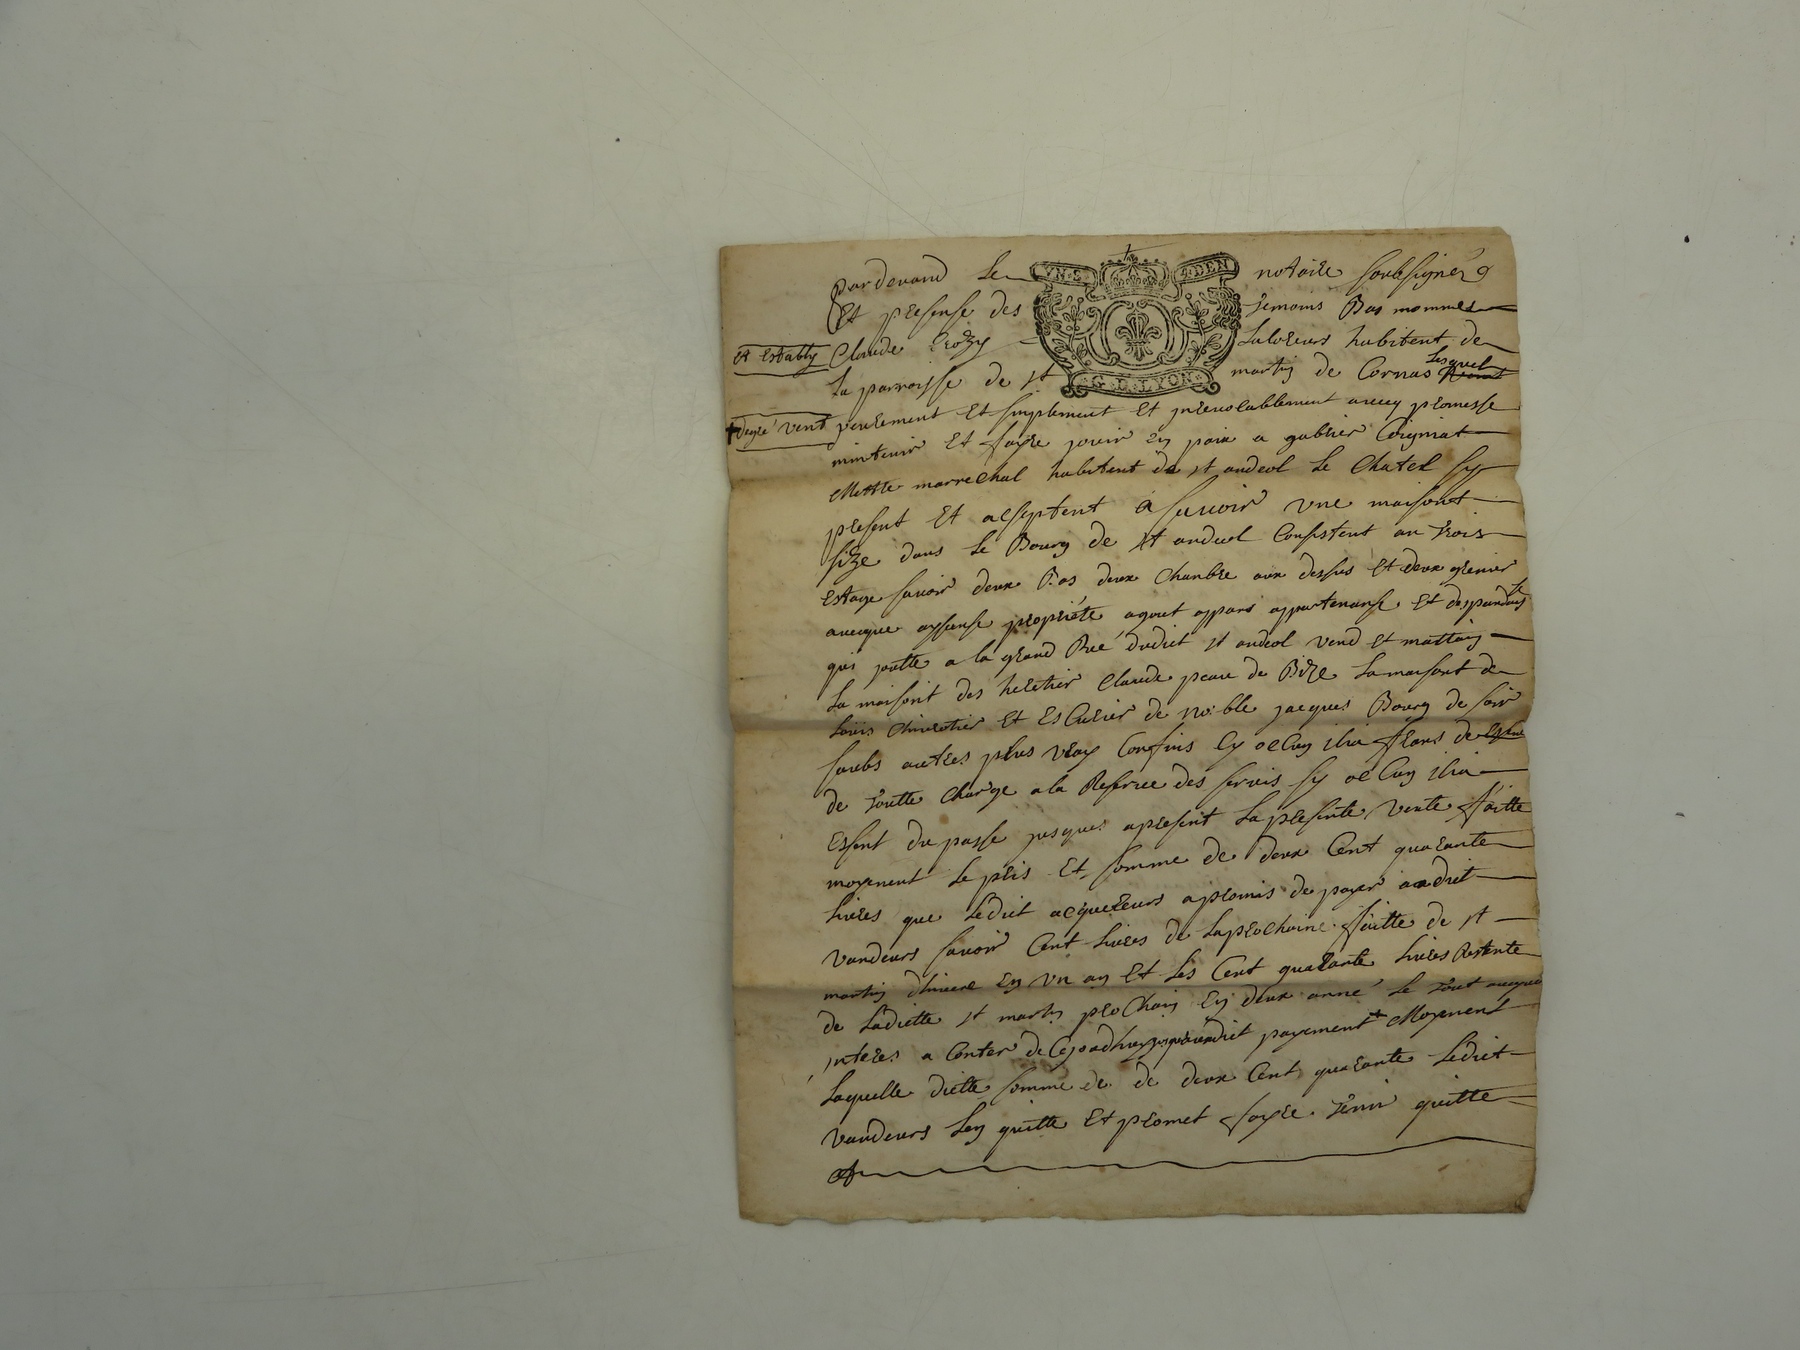 pardevand le notaire soubsigné
VN·S 4·DEN
Et presense des temoins Bas nommes
et estably Claude Crozy laboreurs habitent de
la parroisse de st martin de Cornas lesquel
G·D·LYON
degré vent purement Et simplement Et jrrevocablement avecq promesse
mintenir Et fayre jouir en paix a gabrier Coignat
Mettre marrechal habitent de st andeol le Chatel sy
present Et aceptent a savoir vne maisont
size dans le Bourg de st andeol Consistent an trois
estage savoir deux Bas deux Chanbre aux dessus Et deux grenier
avecque aysense propriété agout appars appartenanse Et despandans
qui joutte a la grand Rue dudict st andeol vend Et mattin
la maisont des heretier Claude peare de Bize la maisont de
louis Et Escurier de noble jacques Bourg de soir
saubs autres plus vray Confins sy ocCun jlia frans de
de toutte Charge a la Reserve des servis sy ocCun jlia
Esent du passe jusques apresent la presente vente faitte
moyenent le pris Et somme de deux Cent quarante
livres que ledict acquereurs apromis de payer audict
vandeurs savoir Cent livres de laprochaine faitte de st
martin dhivere En vn an Et les Cent quarante livres Restente
de ladictte st martin proChain En deux anné le tout avecque
jnteres a Conter de Cejoadhuy payement Moyenent
laquelle dictte somme de de deux Cent quarante ledict
vandeurs len quitte Et promet fayre tenir quitte